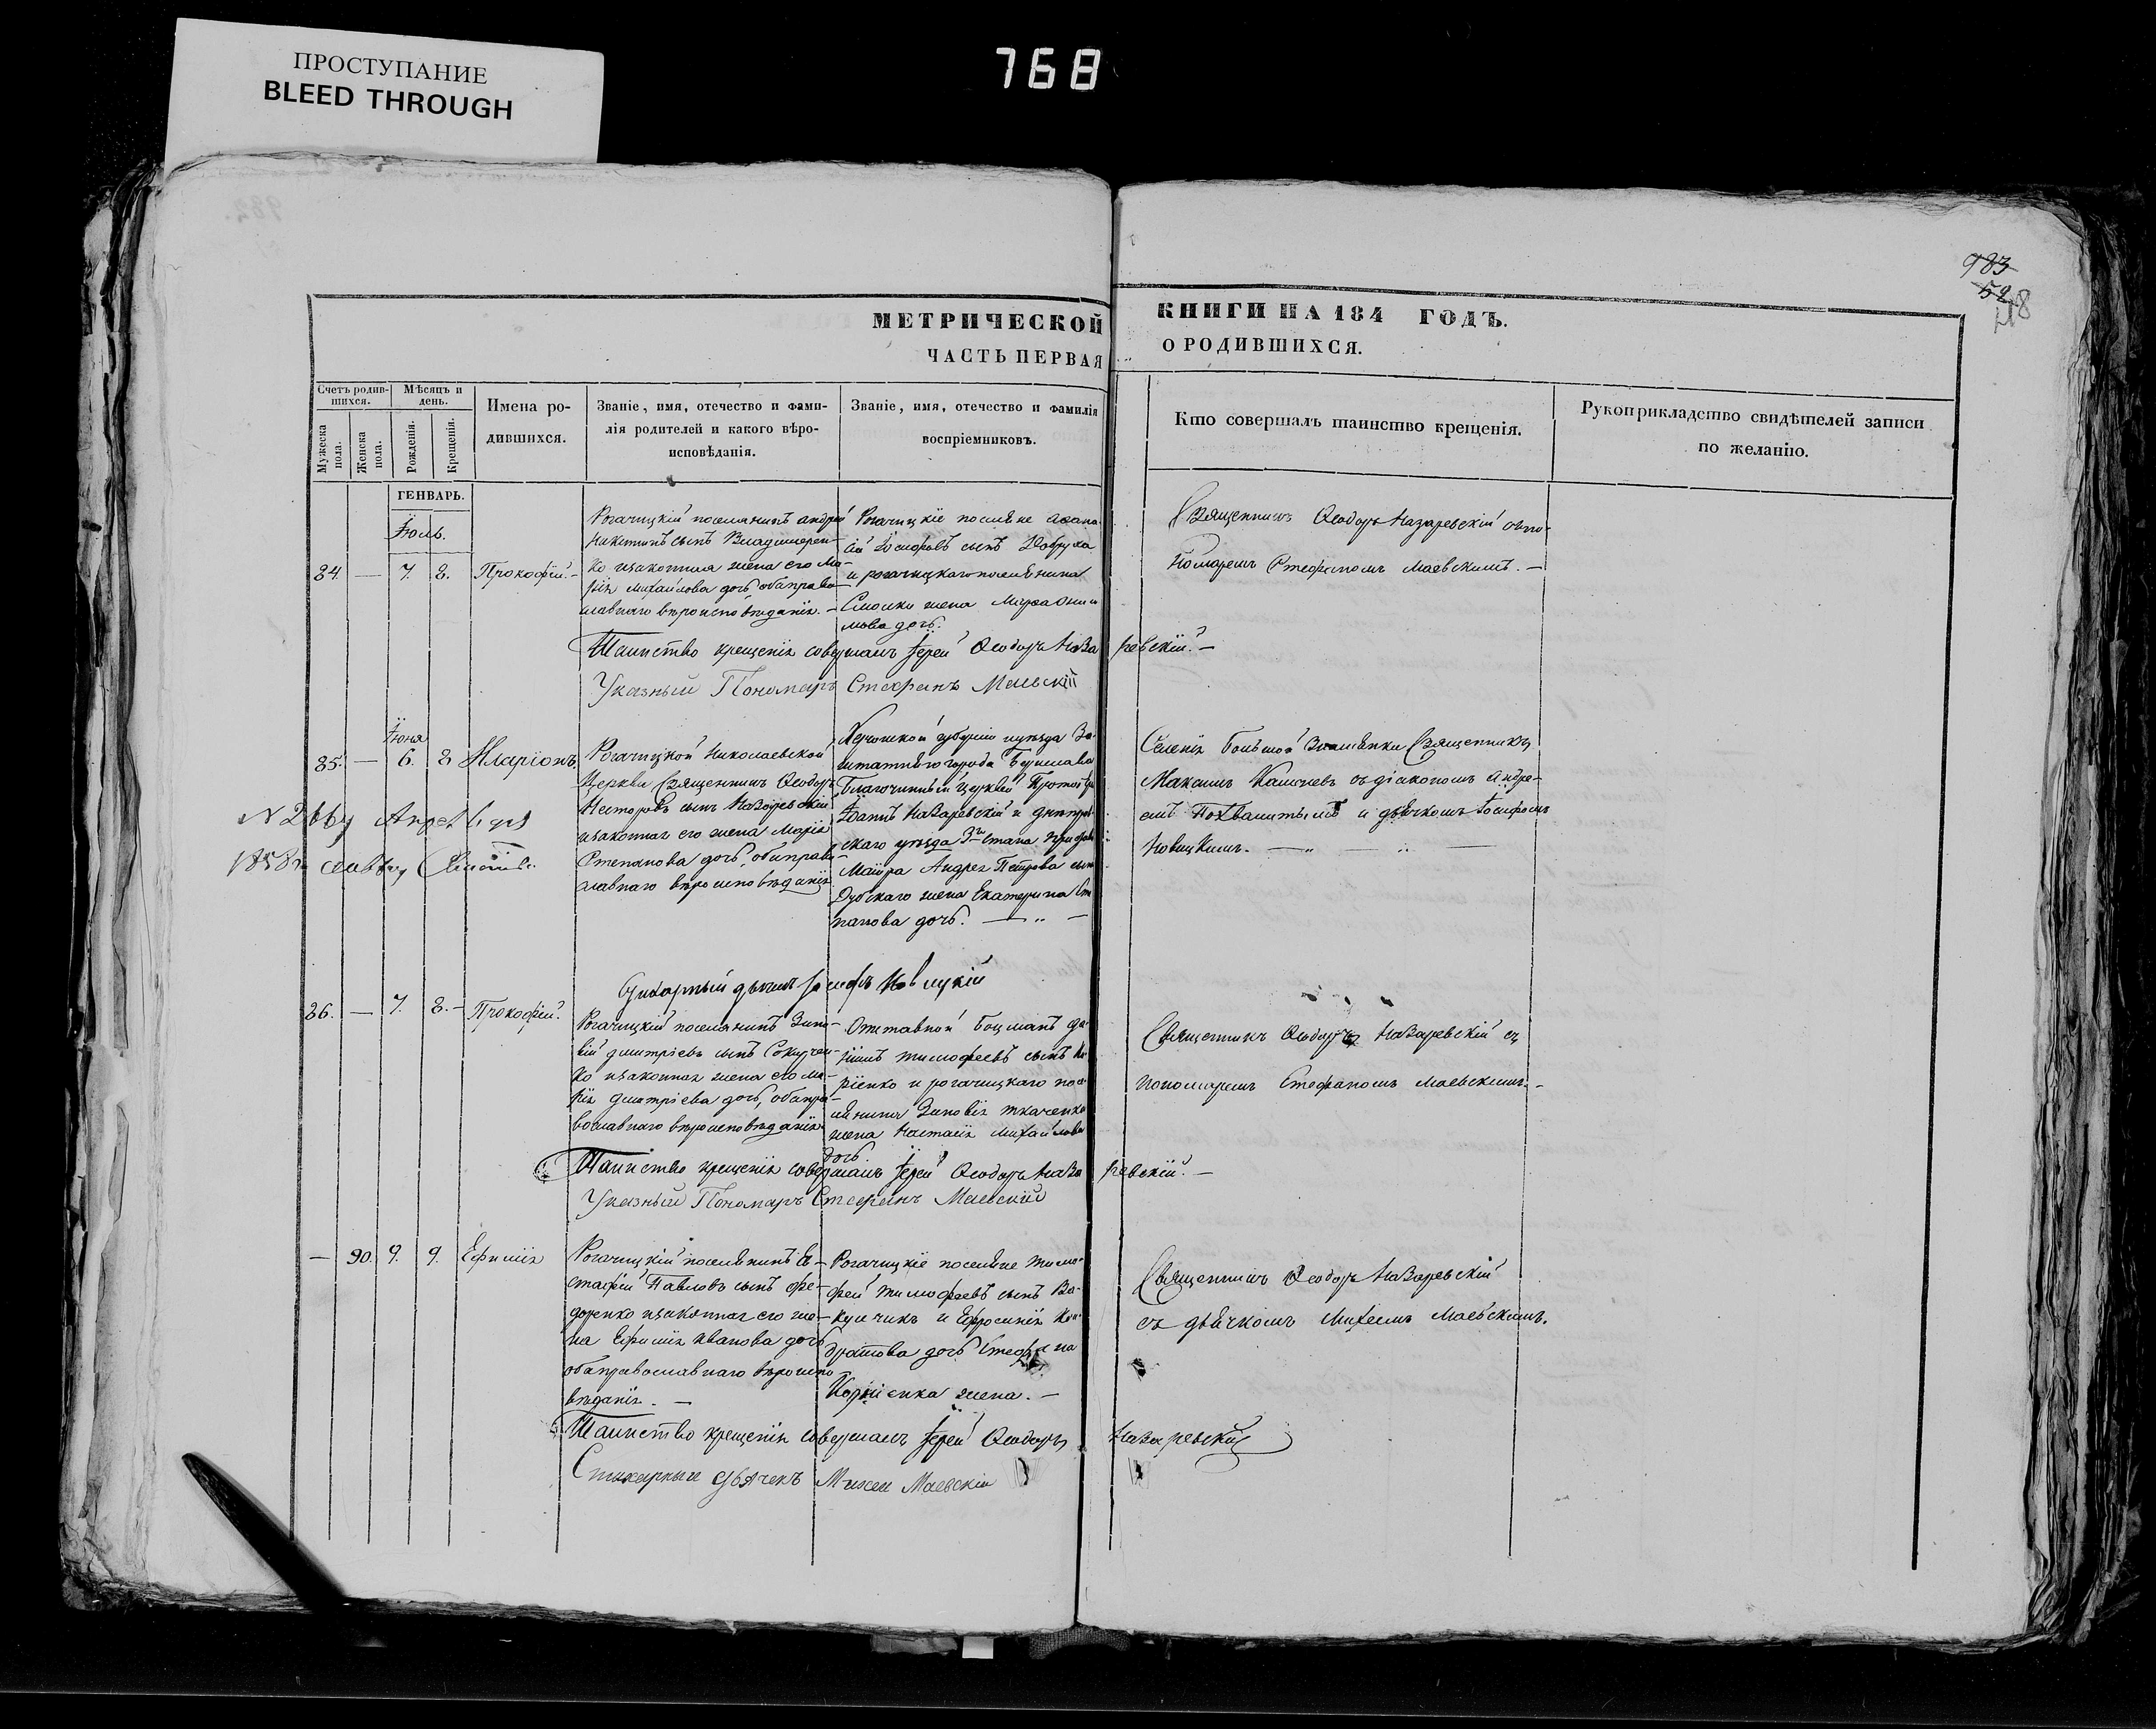 ПРОСТУПАНИЕ
BLEED THROUGH
768
983
52
МЕТРИЧЕСКОЙ КНИГИ НА 184 ГОДЪ.
ЧАСТЬ ПЕРВАЯ О РОДИВШИХСЯ.
Счетъ родив-
шихся.
Мужеска пола.
Женска пола.
Мѣсяцъ и день.
Рожденія.
Крещенія.
Имена ро-
дившихся.
Званіе, имя, отечество и фами-
лія родителей и какого вѣро-
исповѣданія.
Званіе, имя, отечество и фамилія
воспріемниковъ.
Кто совершалъ таинство крещенія.
Рукоприкладство свидѣтелей записи
по желанію.
ГЕНВАРЬ.
Іюль.
84. — 7. 8. Прокофій. –
Рогачицкій поселянинъ андрей
Никитинъ сынъ Владимерен-
ко изаконная жена его Ма-
рія михайлова дочь, обаправо-
славнаго вѣроисповѣданія. –
Рогачицкіе поселяне
сій Іосифовъ сынъ
и рогачицкаго поселянина
жена
мова дочь.
Священникъ Ѳеодоръ Назаревскій съ по-
номаремъ Стефаномъ Маевскимъ. –
Таинство крещенія совершалъ Іерей Ѳеодоръ Назаревскій. –
Указный Пономарь Стефанъ Маевскій
Іюня
85. — 6. 8 Иларіонъ
Рогачицкой Николаевской
Церкви Священникъ Ѳеодоръ
Несторовъ сынъ Назаревскій
изаконная его жена Марія
Степанова дочь, обаправо-
славнаго вѣроисповѣданія
Херсонской губерніи уѣзда За-
штатнаго города Бериславъ
Благочинный Церквей
Іоаннъ Назаревскій и днѣпров-
скаго уѣзда 3го Стана
Маіора Андрея Петрова сына
жена Екатерина Сте
панова дочь. — „ —
Селенія Большой Знаменки Священникъ
Максимъ съ діакономъ Андре-
емъ и дьячкомъ Іосифомъ
Новицкимъ. — „ — „ —
N 2664
1858
дьячекъ Іосифъ Новицкій
86. — 7. 8. – Прокофій.
Рогачицкій поселянинъ Зино-
вій дмитріевъ сынъ
ко изаконная жена его Ма-
рія дмитріева дочь, обапра-
вославнаго вѣроисповѣданія
Отставной Боцманъ
тимофеевъ сынъ
ріенко и рогачицкаго посе-
лянина Зиновія ткаченко
жена Настасія Михайлова
дочь.
Священникъ Ѳеодоръ Назаревскій съ
пономаремъ Стефаномъ Маевскимъ. –
Таинство крещенія совершалъ Іерей Ѳеодоръ Назаревскій. –
Указный Пономарь Стефанъ Маевскій
— 90. 9. 9. Ефимія
Рогачицкій поселянинъ Ев-
стафій Павловъ сынъ Фе-
доренко изаконная его же-
на Ефимія Иванова дочь
обаправославнаго вѣроиспо
вѣданія. —
Рогачицкіе поселяне тимо-
фей тимофеевъ сынъ Ва-
кулчикъ и Ефросинія Кон-
дратова дочь Стефана
Корніенка жена. –
Священникъ Ѳеодоръ Назаревскій
съ дьячкомъ Михеемъ Маевскимъ.
Таинство крещенія совершалъ Іерей Ѳеодоръ Назаревскій
Стихарный дьячекъ Михей Маевскій